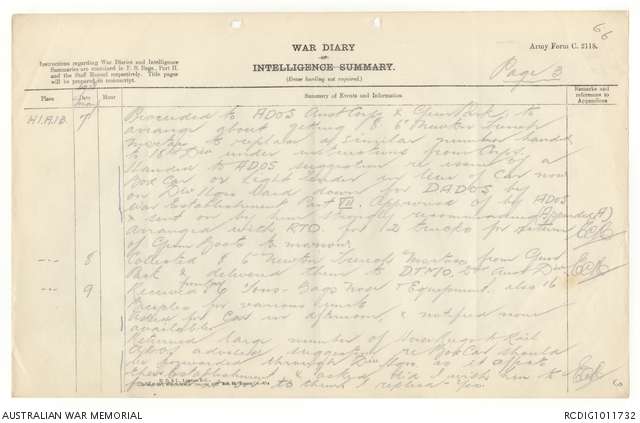 66
WAR DIARY
OR
INTELLIGENCE SUMMARY.
(Erase heading not required.)
Army Form C. 2118.
Instructions regarding War Diaries and Intelligence
Summaries are contained in F. S. Regs., Part II.
and the Staff Manual respectively. Title pages
will be prepared in manuscript.
Page 3
Place
Date
Hour
Summary of Events and Information
Remarks and
references to
Appendices
H.1.A.1.B. 7 Proceeded to ADOS Aust Corps & Gun Park, to
arrange about getting 8 6" Newton trench
mortars to replace a similar number handed
to 18th Div under instructions from Corps.
Handed to ADOS suggestion re issue of a
Box Car or Light tender in lieu of Car now
on Div laid down for DADOS by
War Establishment Part VII. Approved of by ADOS
& sent on by him strongly recommending (Appendix A)
Arranged with RTO for 12 trucks for return
of Gum Boots to marrow
-"- 8 Collected 8 6" Newton Trench Mortars from Gun
Park & delivered them to DTMO 2nd Aust Div
-"- 9 Received 6 Tons Bags Nose & Equipment also 16
Bicycles for various units
Asked for Car in afternoon, & notified none
available
Returned large number of to Rail
advised suggestion re Box Car should
be forwarded through Div Hqrs as it affects
Establishment & asked did I wish him to
to them I replied - Yes
60
AUSTRALIAN WAR MEMORIAL
RCDIG1011732